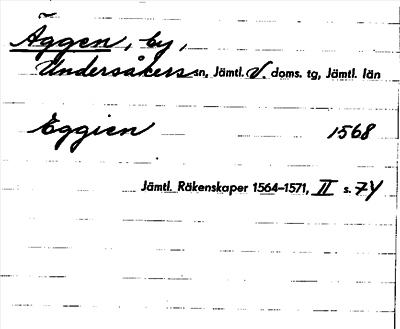 Äggen, by,
Undersåkers sn, Jämtl. V. doms. tg, Jämtl. län
Eggien 1568
Jämtl. Räkenskaper 1564–1571, II s. 74